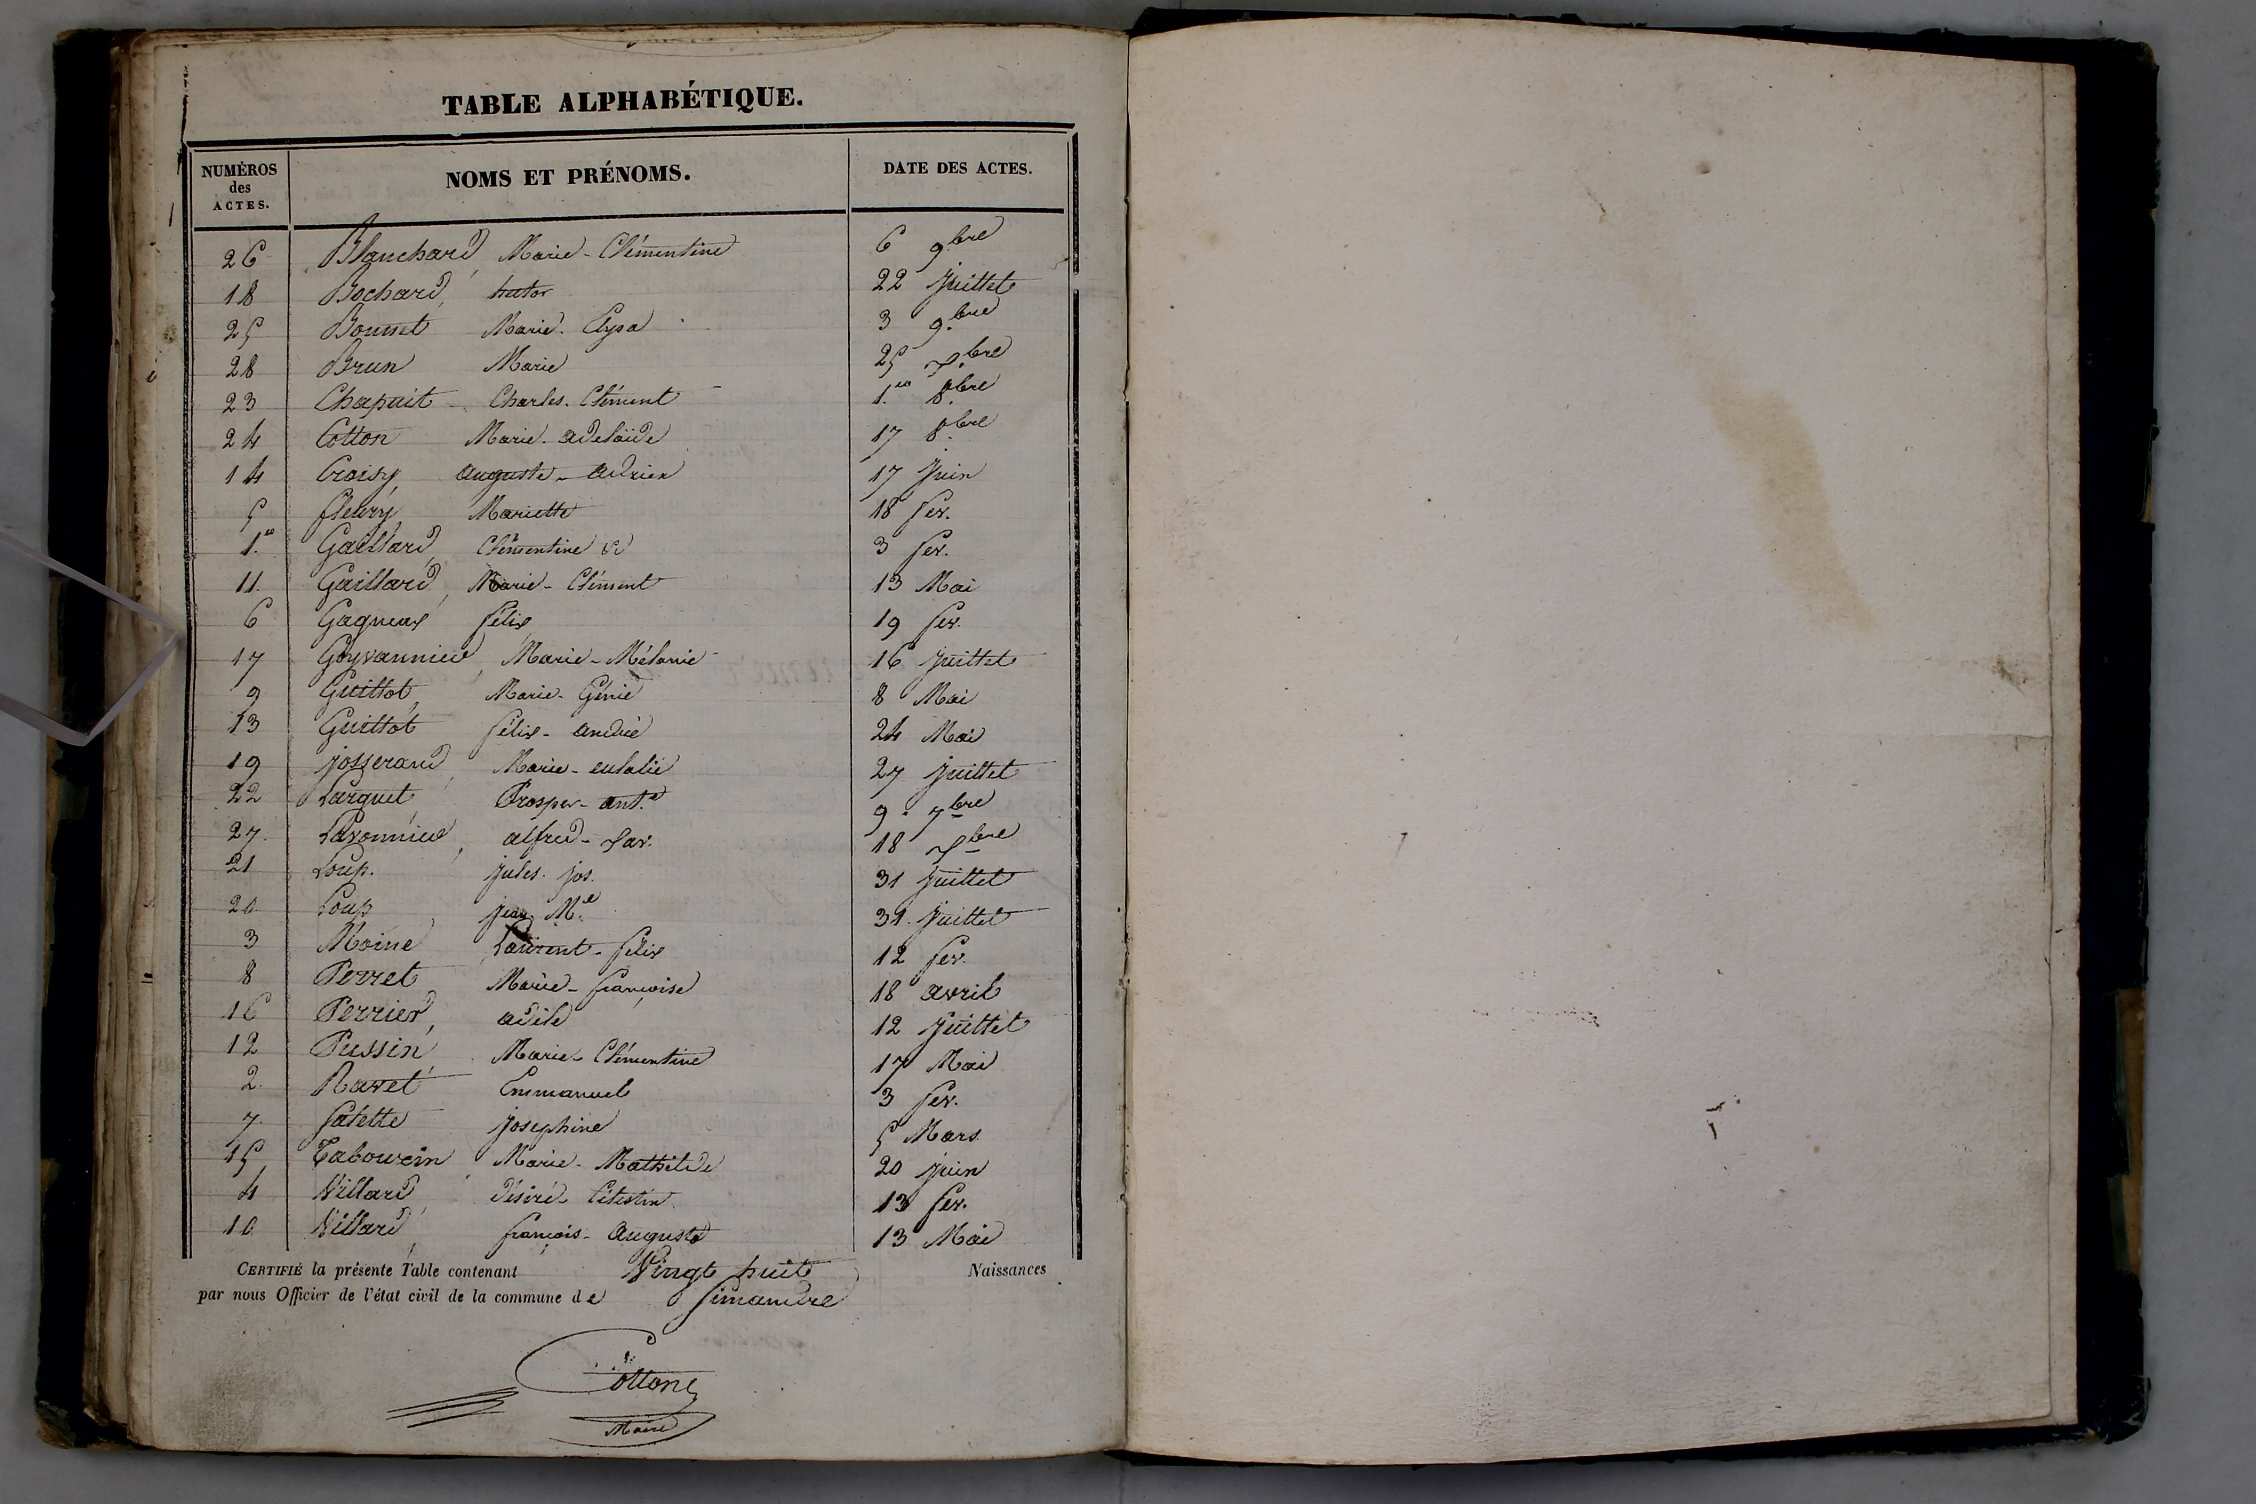 TABLE ALPHABÉTIQUE.
NUMÉROS des ACTES. NOMS ET PRÉNOMS. DATE DES ACTES.
26 Blanchard Marie-Clémentine 6 9.bre
18 Bochard, hector 22 juillet
25 Bonnet Marie-Elysa 3 9.bre
28 Brun Marie 25 X.bre
23 Chapuit Charles-Clément 1.er 8.bre
24 Cotton Marie-adelaïde 17 8.bre
14 Croisy auguste-adrien 17 juin
5 fleury Mariette 18 fev.
1.er Gaillard, Clémentine 3 fev.
11. Gaillard, Marie-Clément 13 Mai
6 Gagneux félix 19 fev.
17 Goyvannier, Marie-Mélanie 16 juillet
9 Guillot, Marie-Génie 8 Mai
13 Guillot félix-andré 24 Mai
19 josserand, Marie-eulalie 27 juillet
22 Larguet Prosper-ant.e 9 7bre
27. Lavonnier, alfred-xav. 18 Xbre
21 Loup. jules. jos. 31 juillet
20 Loup jean M.e 31. juillet
3 Moine Laurent-felix 12 fev.
8 Perret Marie-françoise 18 avril
16 Perrier, adèle 12 juillet
12 Pussin Marie-Clémentine 17 Mai
2. Ravet Emmanuel 3 fev.
7. Salette josephine 5 Mars
15 Tabouzin Marie-Mathilde 20 juin
4 Villard désiré-Célestin 13 fev.
10 Villard, françois-auguste 13 Mai
CERTIFIÉ la présente Table contenant Vingt huit Naissances
par nous Officier de l'état civil de la commune de Simandre
Cotton
Maire